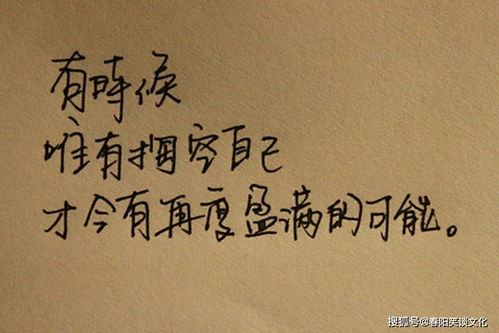 有時候
唯有掏空自己
才会有再度盈满的可能。
搜狐号@春阳笑谈文化